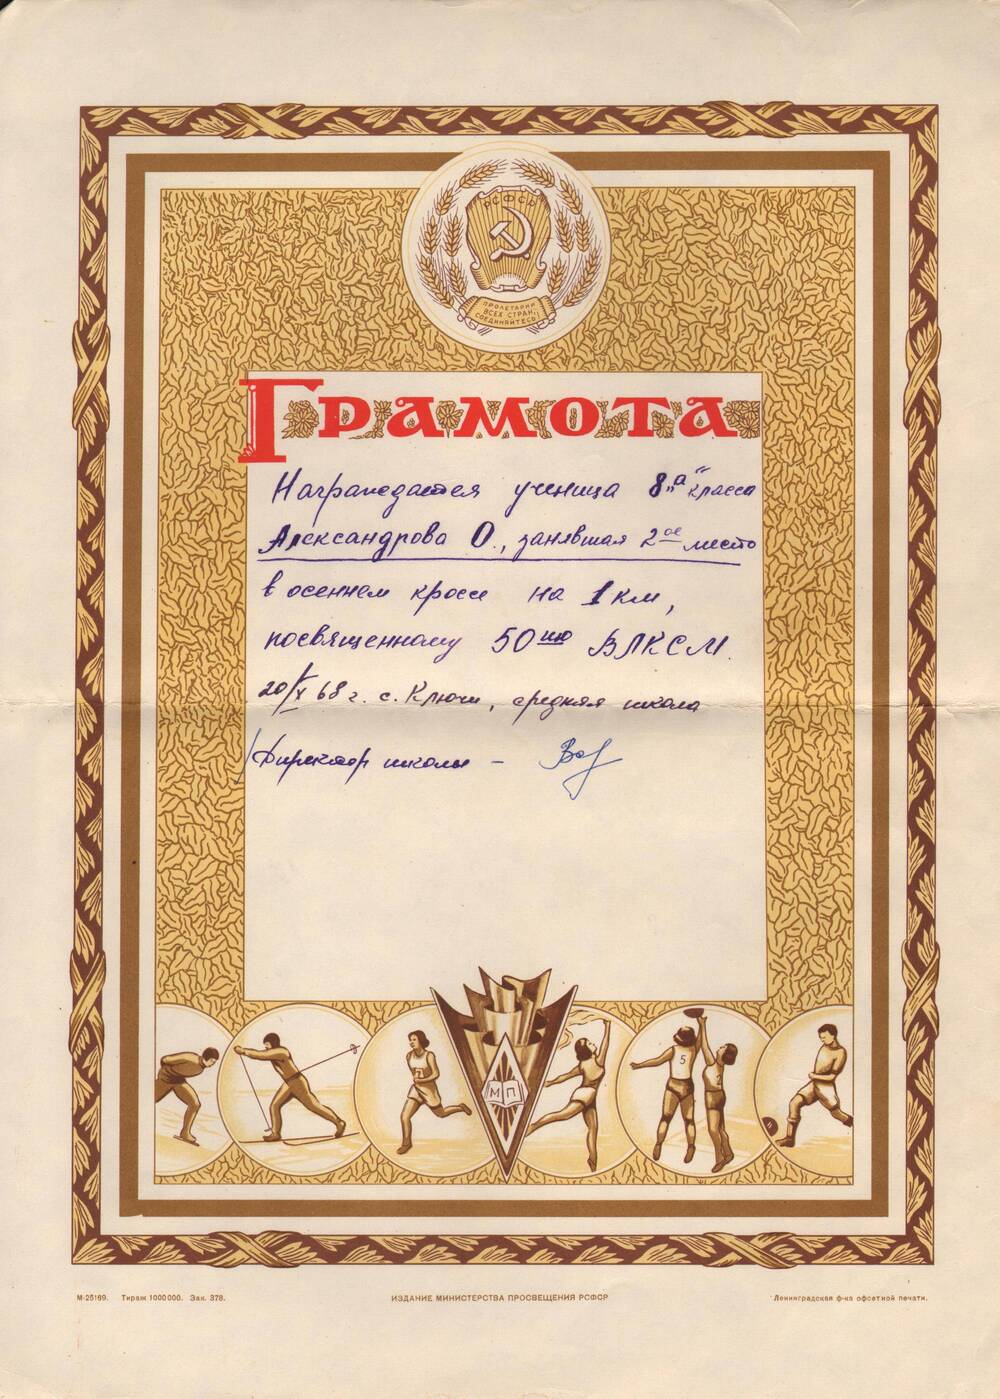 РСФСР
ПРОЛЕТАРИИ
ВСЕХ СТРАН,
СОЕДИНЯЙТЕСЬ
ГРАМОТА
Награждается ученица 8 „а“ класса
Александрова О., занявшая 2ое место
в осеннем кроссе на 1 км,
посвященному 50тию ВЛКСМ.
20/X 68 г. с. Ключи, средняя школа
Директор школы –
7
МП
5
М-25169. Тираж 1000000. Зак. 378.
ИЗДАНИЕ МИНИСТЕРСТВА ПРОСВЕЩЕНИЯ РСФСР
Ленинградская ф-ка офсетной печати.